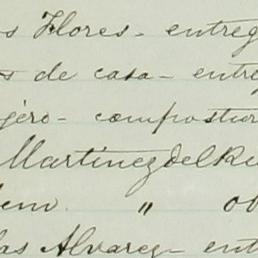 os Flores - entreg
s de casa - entre
géro - compostur
Martinez del Ri
dem " ob
las Alvarez - ent